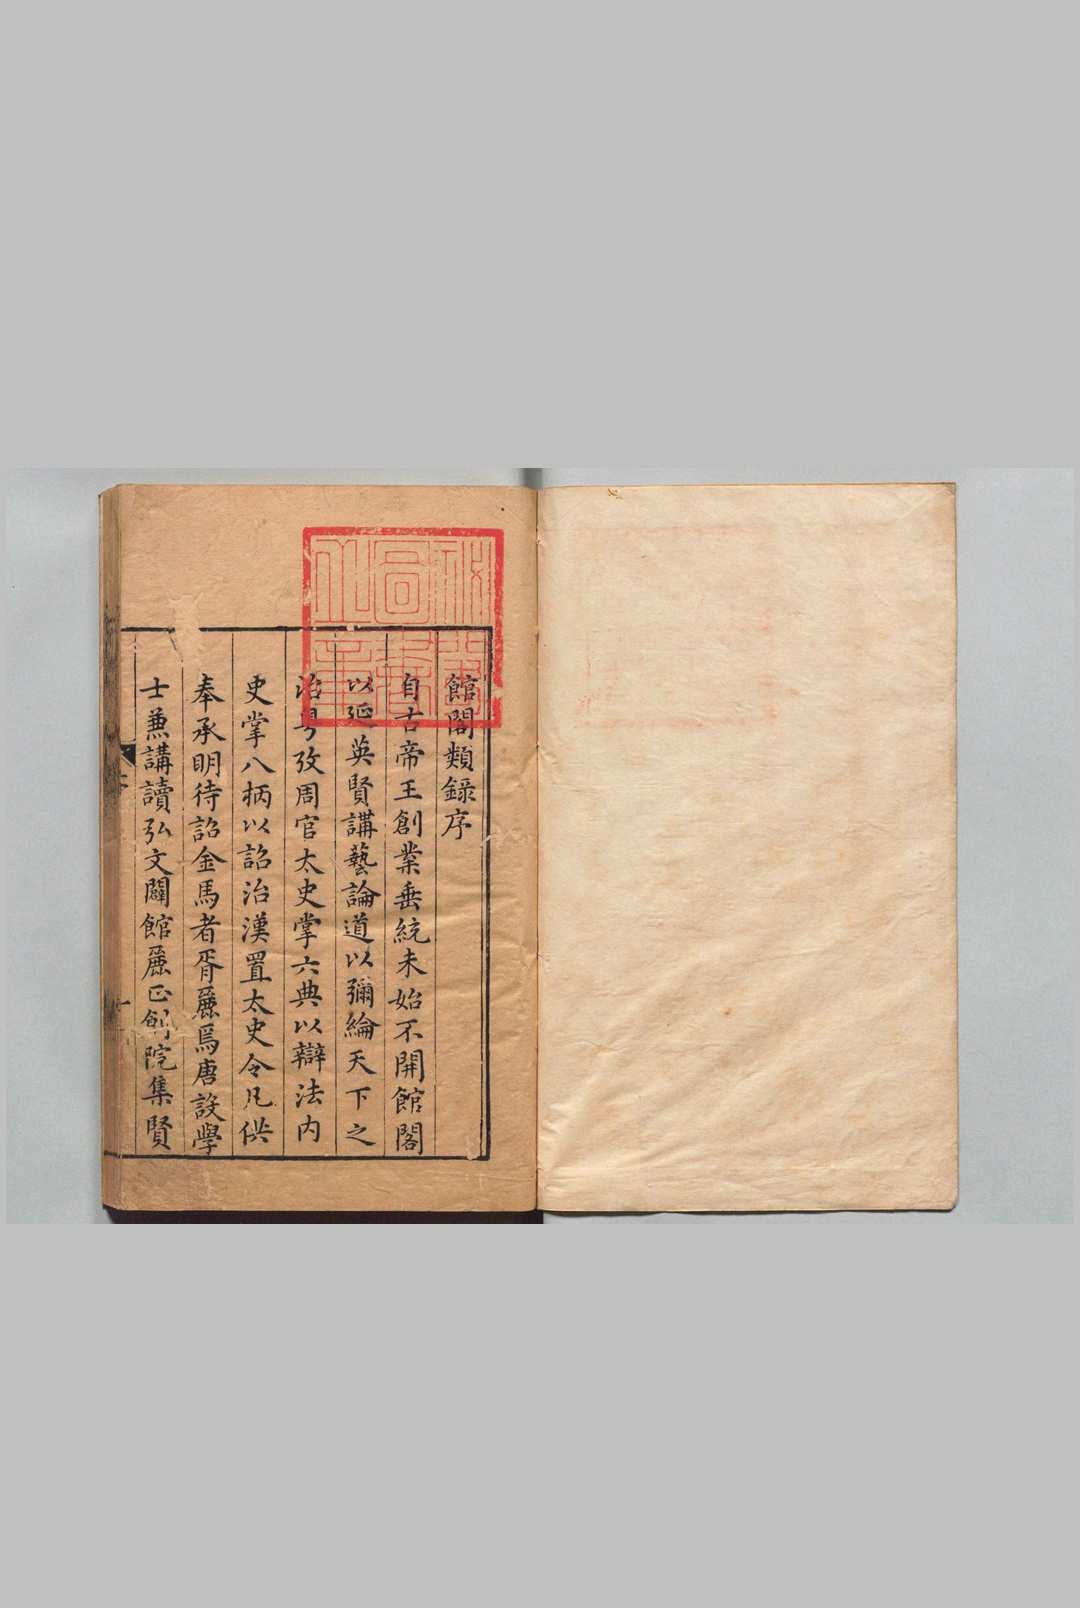 館閣類錄序
自古帝王創業垂統未始不開館閣
以延英賢講藝論道以彌綸天下之
治粤攷周官太史掌六典以辯法内
史掌八柄以詔治漢置太史令凡供
奉承明待詔金馬者胥麗焉唐設學
士兼講讀弘文闢館麗正創院集賢